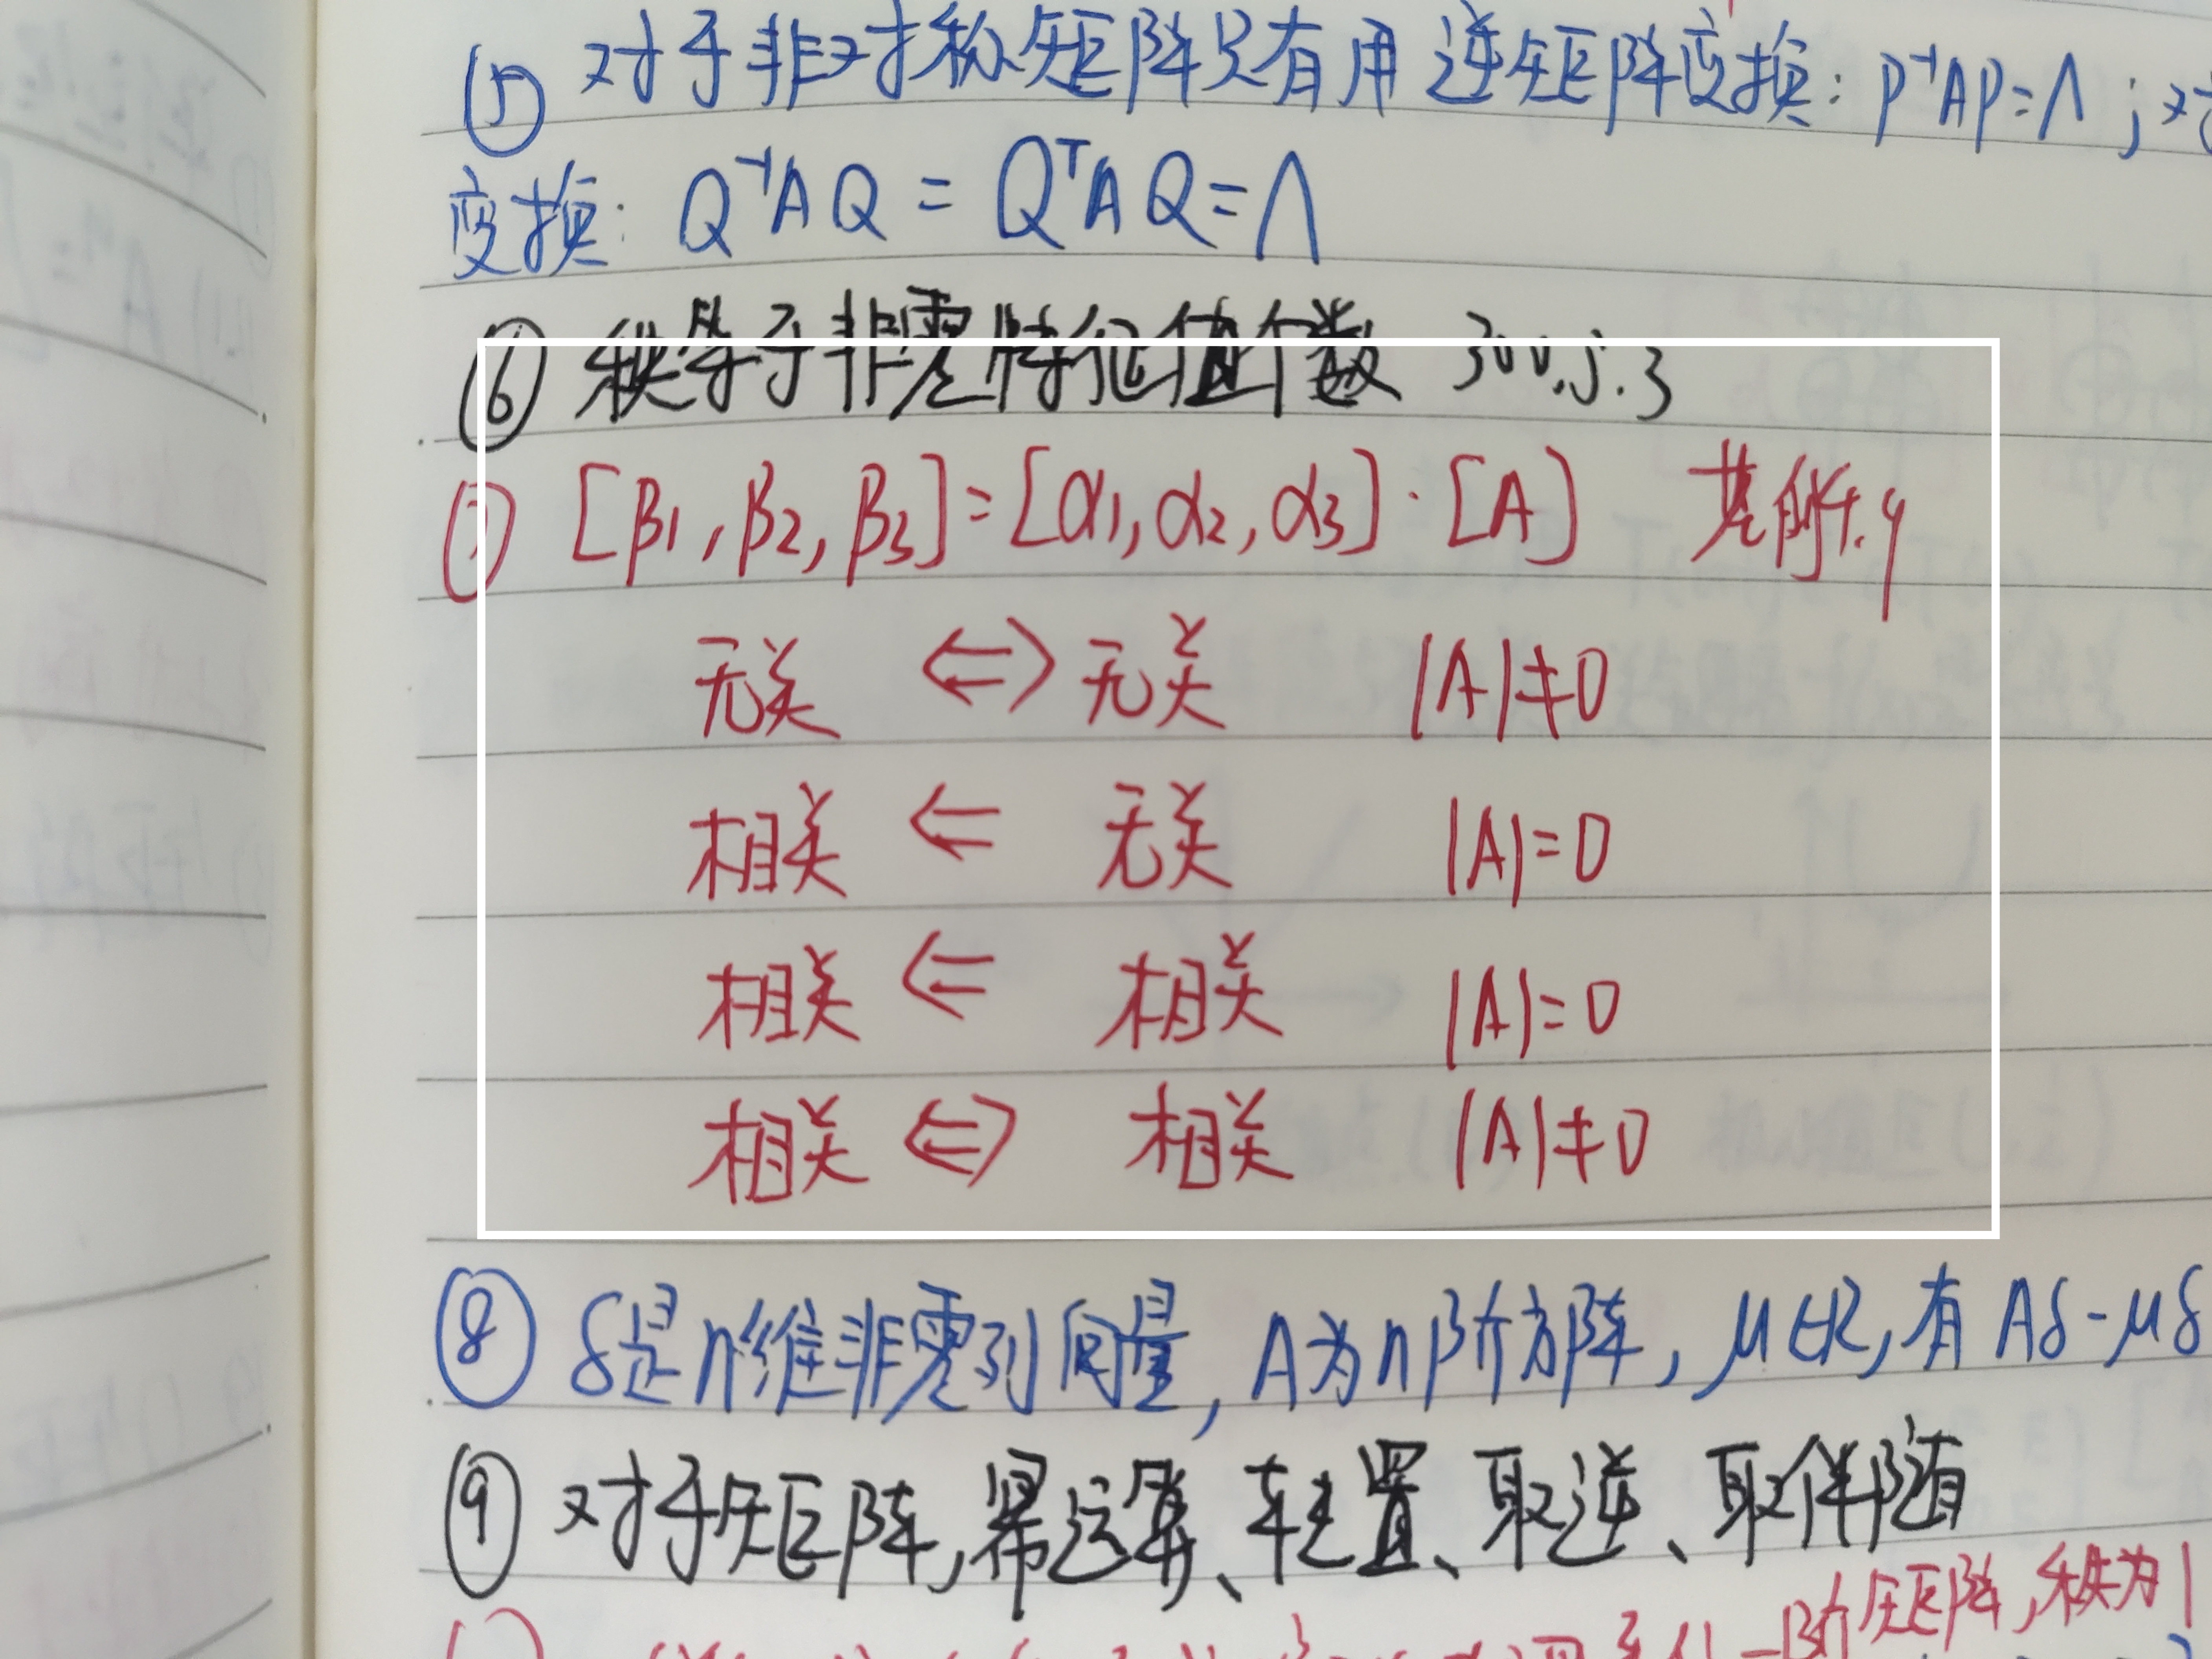 ⑤ 对于非对称矩阵只有用逆矩阵变换：P⁻¹AP=Λ；对
变换：Q⁻¹AQ = QᵀAQ=Λ
⑥ 秩等于非零特征值个数 300.5.3
⑦ [β1,β2,β3]=[α1,α2,α3]·[A] 基解4.9
无关 ⇔ 无关 |A|≠0
相关 ⇐ 无关 |A|=0
相关 ⇐ 相关 |A|=0
相关 ⇔ 相关 |A|≠0
⑧ δ是n维非零列向量，A为n阶方阵，μ∈R，有Aδ-μδ
⑨ 对于矩阵，幂运算、转置、取逆、取伴随
一阶矩阵，秩为1